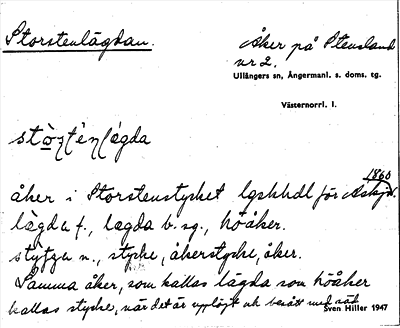 Storstenlägdan.
Åker på Stensland
nr 2.
Ullångers sn, Ångermanl. s. doms. tg.
Västernorrl. l.
1860
åker i Storstenstycket lgskhdl för
lägda f., lægda b. sg., höåker.
n., stycke, åkerstycke, åker.
Samma åker, som kallas lägda som höåker
kallas stycke, när det är upplöjt och besått med säd
Sven Hiller 1947